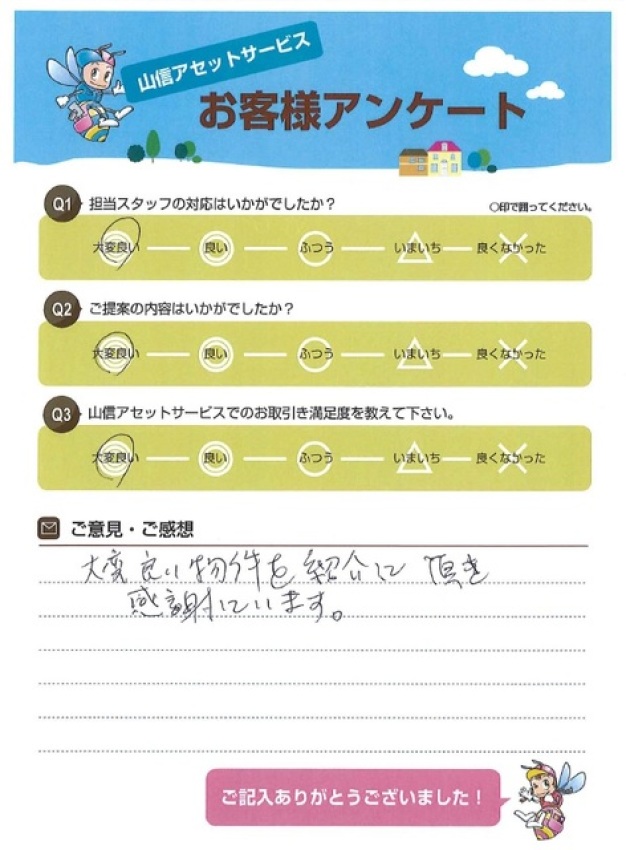 山信アセットサービス
お客様アンケート
Q1 担当スタッフの対応はいかがでしたか？ ○印で囲ってください。
大変良い 良い ふつう いまいち 良くなかった
Q2 ご提案の内容はいかがでしたか？
大変良い 良い ふつう いまいち 良くなかった
Q3 山信アセットサービスでのお取引き満足度を教えて下さい。
大変良い 良い ふつう いまいち 良くなかった
ご意見・ご感想
大変良い物件を紹介して頂き
感謝しています。
ご記入ありがとうございました！